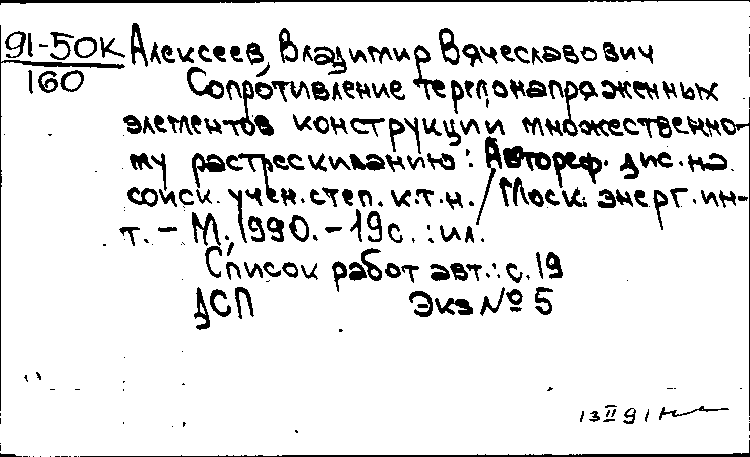 91-50к Алексеев, Владимир Вячеславович
160 Сопротивление термонапряженных
элементов конструкции множественно-
му растрескиванию: Автореф. дис. на
соиск. учен. степ. к.т.н. / Моск. энерг. ин-
т. - М., 1990. - 19с. : ил.
Список работ авт.: с. 19
ДСП Экз № 5
13 II 91